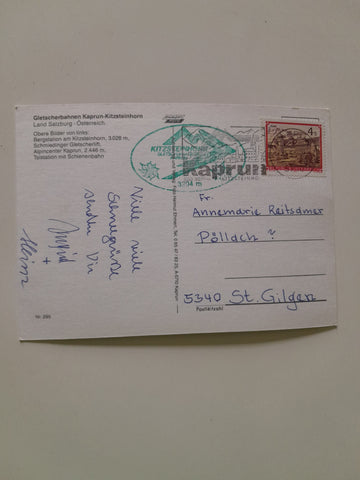 Gletscherbahnen Kaprun-Kitzsteinhorn
Land Salzburg - Österreich.
Obere Bilder von links:
Bergstation am Kitzsteinhorn, 3.026 m,
Schmiedinger Gletscherlift,
Alpincenter Kaprun, 2.446 m,
Talstation mit Schienenbahn
KITZSTEINHORN
3204 m
Kaprun
4
Viele viele
senden Dir
Ingrid
+
Heinz
Nr. 295
Fr.
Annemarie Reitsamer
Pöllach 2
5340 St. Gilgen
Postleitzahl